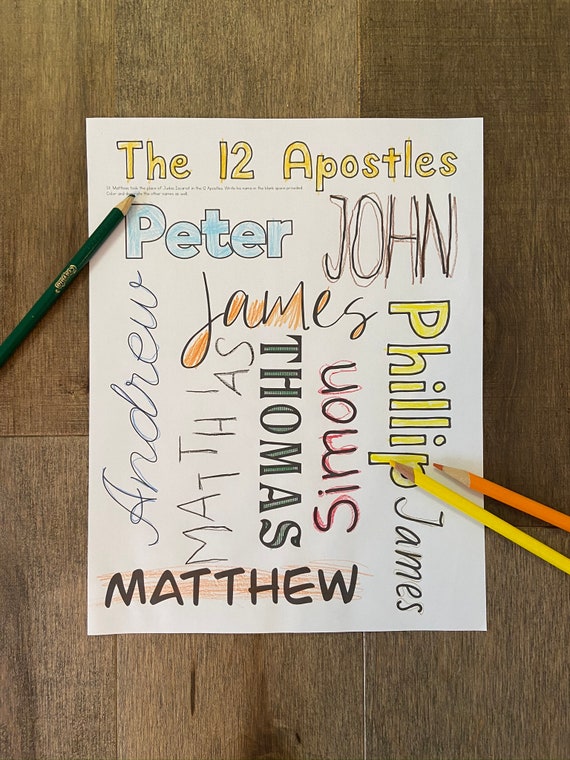 The 12 Apostles
St. Matthias took the place of Judas Iscariot in the 12 Apostles. Write his name in the blank space provided.
Color and decorate the other names as well.
Peter
JOHN
James
Andrew
MATTHIAS
THOMAS
Simon
Phillip
James
MATTHEW
Crayola